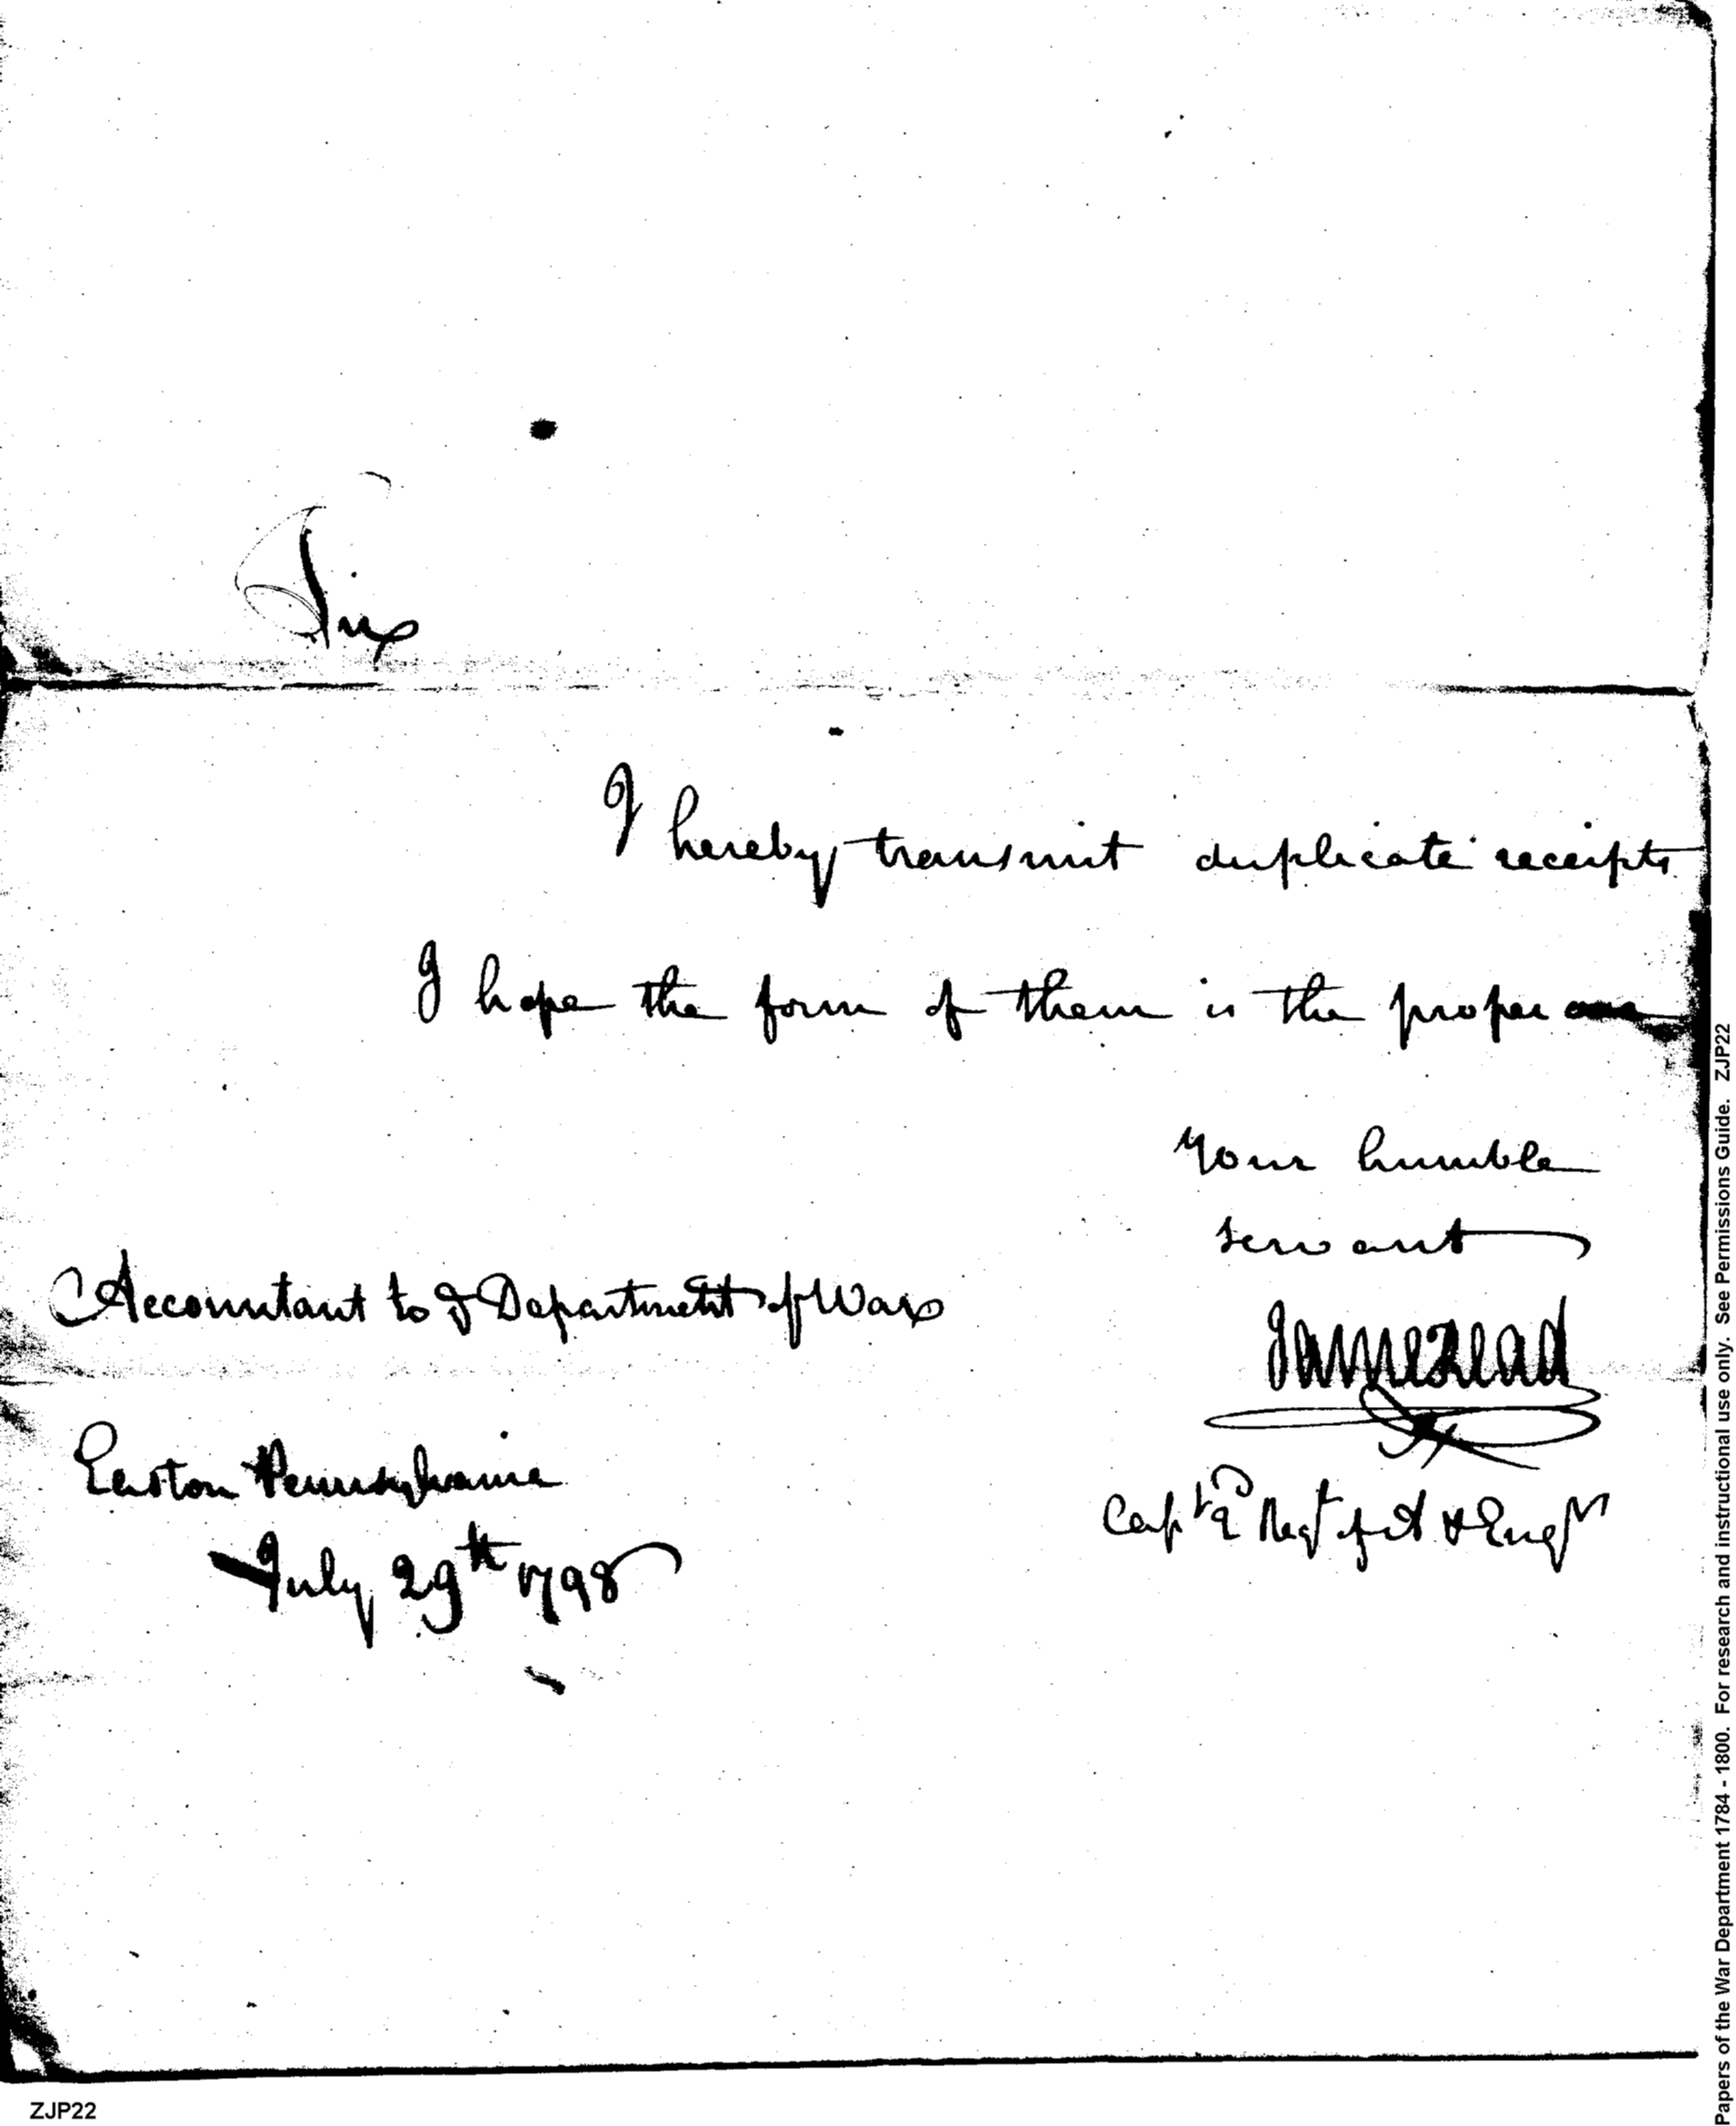 Sir
I hereby transmit duplicate receipts
I hope the form of them is the proper one
Your humble
servant
Accountant to ye Department of War
James Read
Easton Pennsylvania
Capt 2d Regt of A & Engrs
July 29th 1798
Papers of the War Department 1784 - 1800. For research and instructional use only. See Permissions Guide. ZJP22
ZJP22